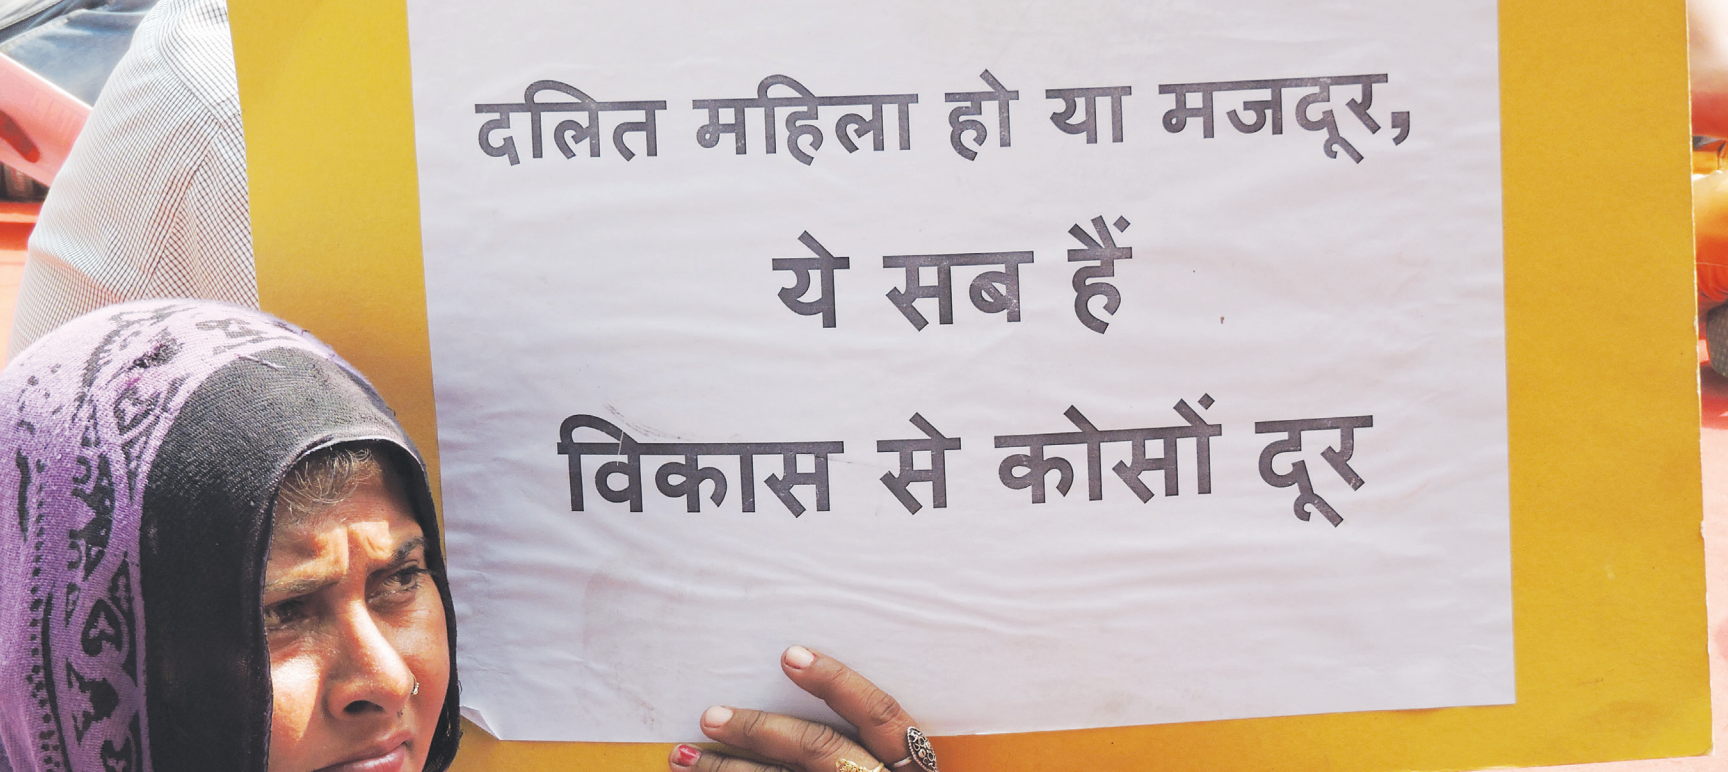 दलित महिला हो या मजदूर,
ये सब हैं
विकास से कोसों दूर